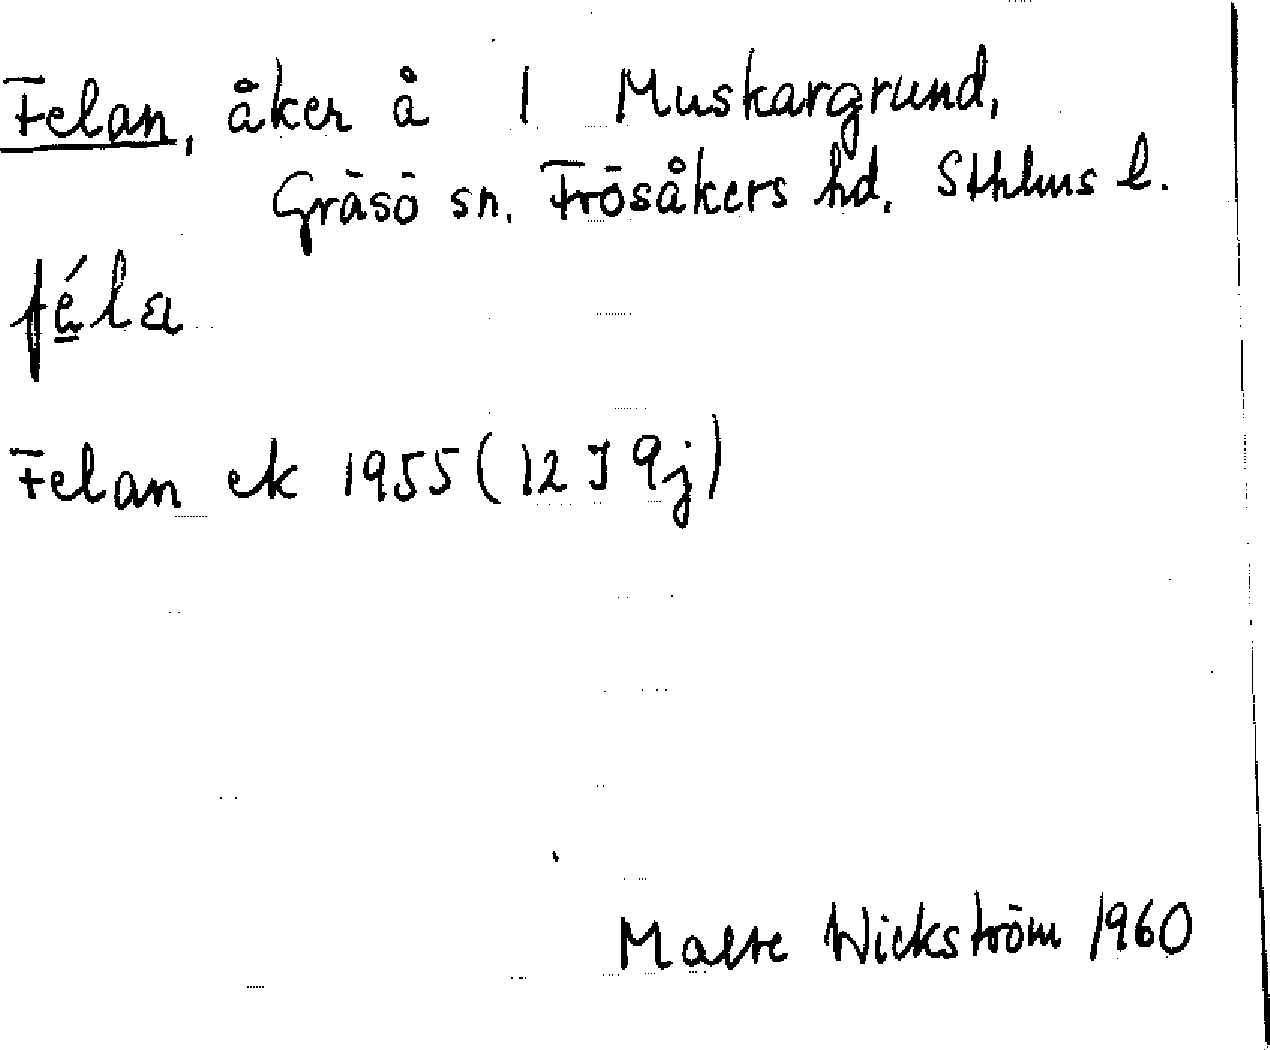 Felan, åker å 1 Muskargrund,
Gräsö sn. Frösåkers hd. Sthlms l.
fé̱la
Felan ek 1955 (12 I 9j)
Malte Wickström 1960